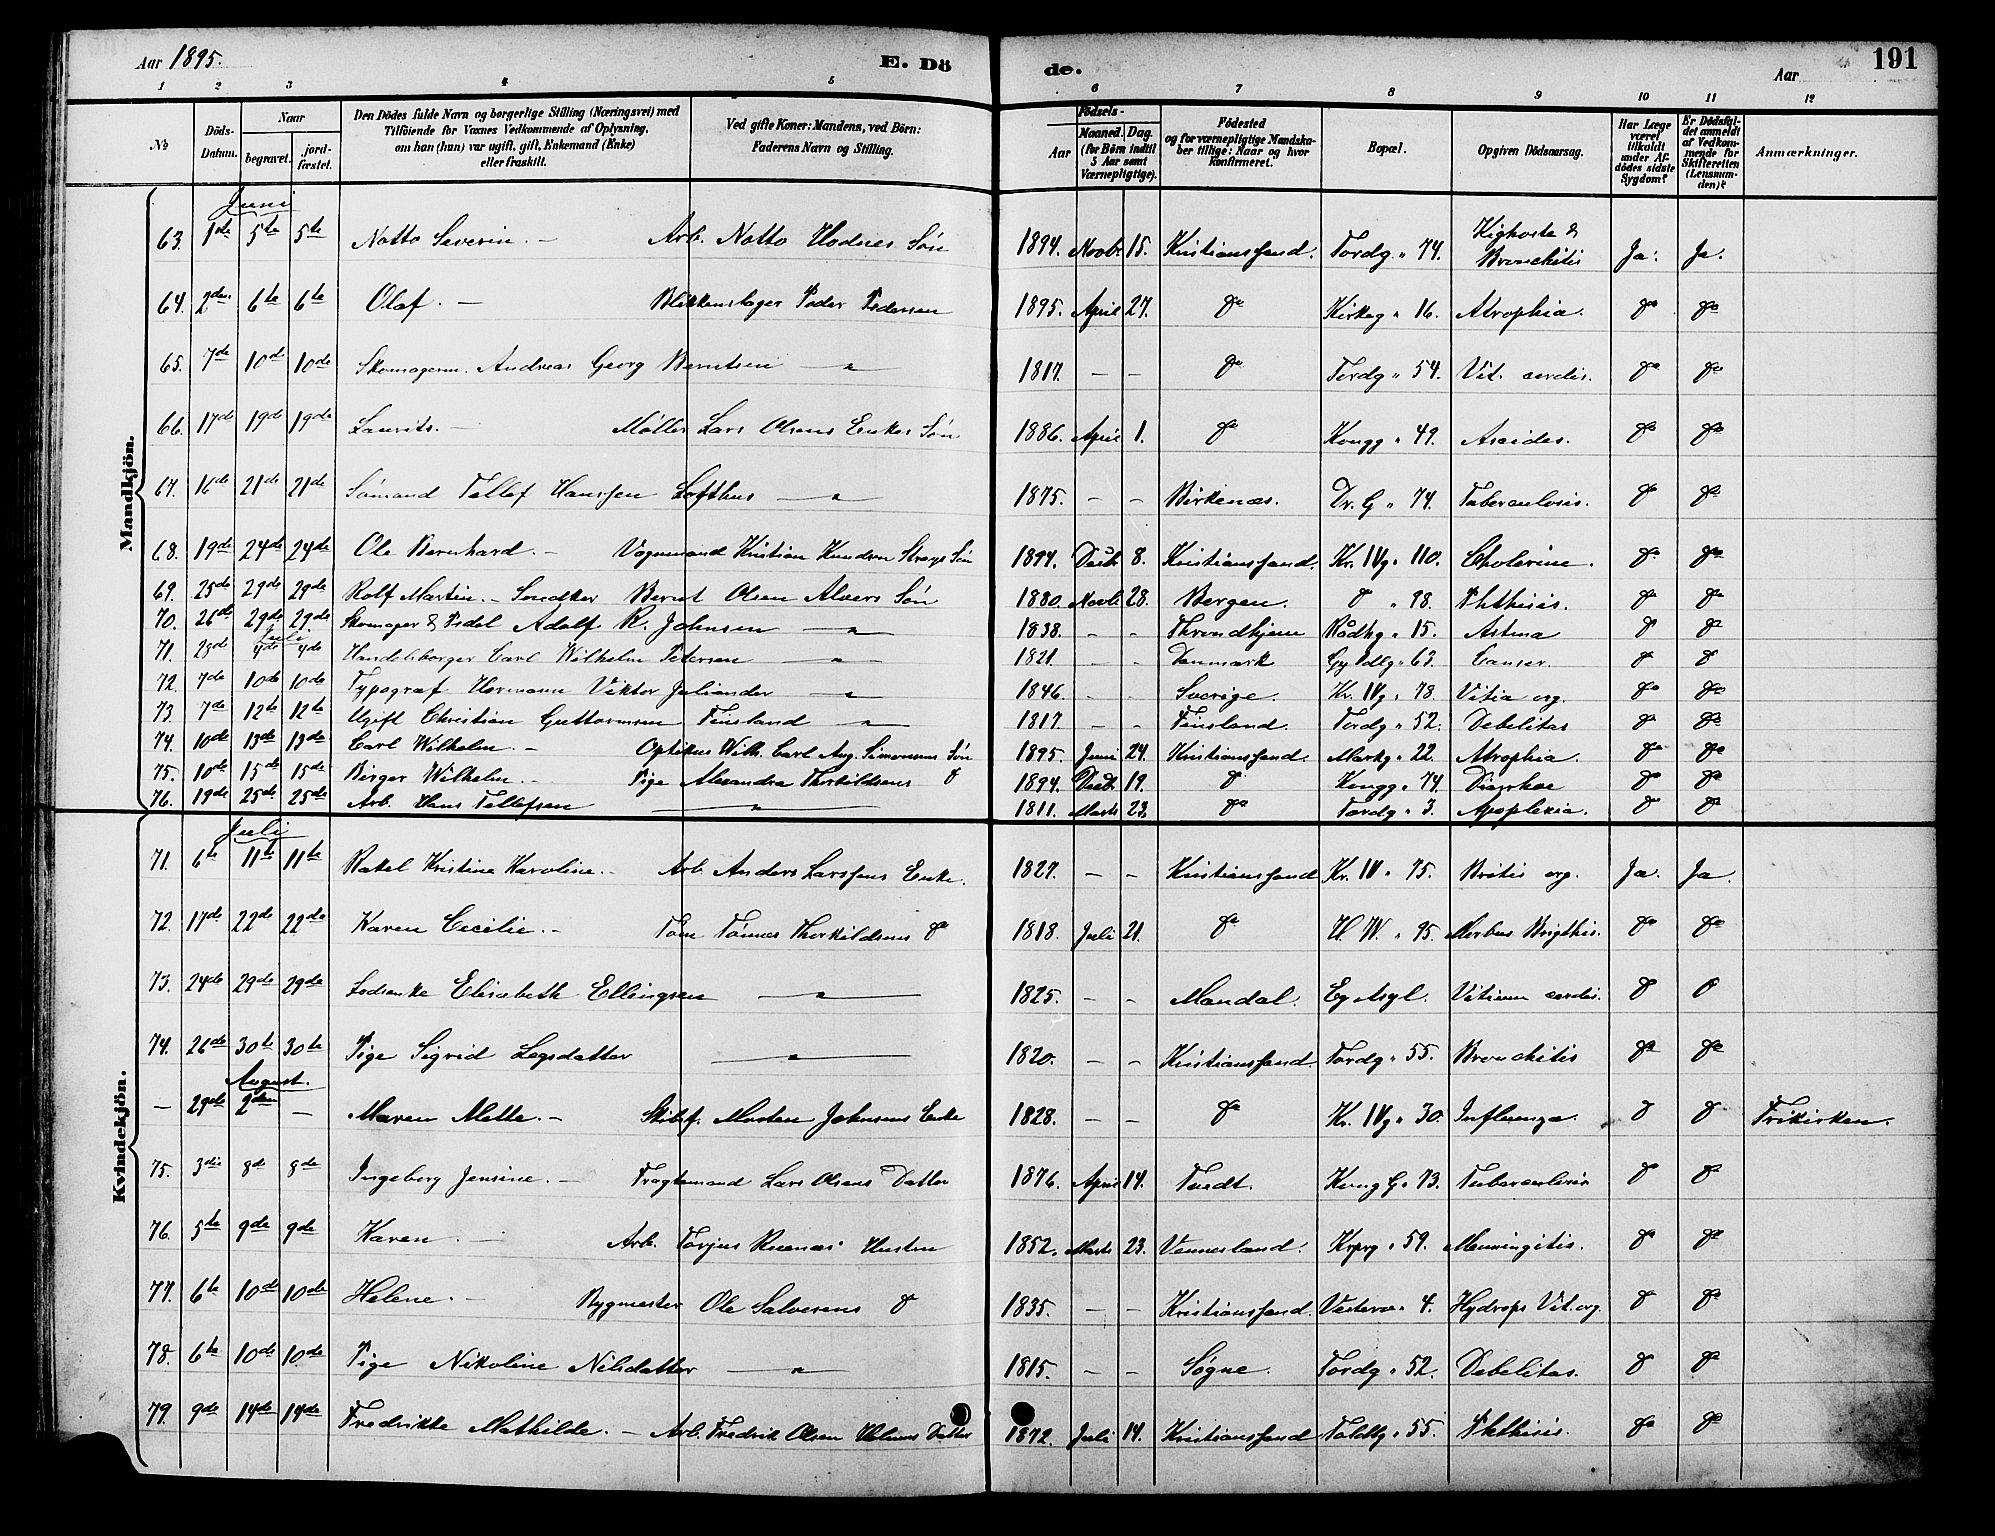 Aar 1895.
E. Dö de.
Aar
191
1 2 3 4 5 6 7 8 9 10 11 12
№
Döds-Datum.
Naar
begravet.
jordfæstet.
Den Dödes fulde Navn og borgerlige Stilling (Næringsvei) med Tilföiende for Voxnes Vedkommende af Oplysning, om han (hun) var ugift, gift, Enkemand (Enke) eller fraskilt.
Ved gifte Koner: Mandens, ved Börn: Faderens Navn og Stilling.
Födsels-
Aar
Maaned. Dag.
(for Börn indtil 5 Aar samt Værnepligtige).
Födested og for værnepligtige Mandskaber tillige: Naar og hvor konfirmeret.
Bopæl.
Opgiven Dödsaarsag.
Har Læge været tilkaldt under Afdödes sidste Sygdom?
Er Dödsfaldet anmeldt af Vedkommende for Skifteretten (Lensmanden)?
Anmærkninger.
Mandkjön.
Juni
63. 1ste 5te 5te Notto Severin. – Arb. Notto Hodnes Søn 1894. Novb. 15. Kristianssand. Tordg " 74. Kighoste & Bronchitis Ja. Ja.
64. 2den 6te 6te Olaf. – Blikkenslager Peder Pedersen 1895. April 27. do Kirkeg " 16. Atrophia. do do
65. 7de 10de 10de Skomagerm. Andreas Georg Berntsen — " — 1817. – – do Tordg " 54. Vit. cordis. do do
66. 17de 19de 19de Laurits. – Møller Lars Olsens Enkes Søn 1886. April 1. do Kongg " 49. Ascides. do do
67. 16de 21de 21de Sømand Tellef Hanssen Lofthus — " — 1875. – – Birkenæs. Dr. G " 74. Tuberculosis. do do
68. 19de 24de 24de Ole Bernhard. – Vognmand Kristian Knudsen Strays Søn 1894. Decb. 8. Kristianssand. Kr. IVg " 110. Cholerine. do do
69. 25de 29de 29de Rolf Martin. – Snedker Bernt Olsen Alvers Søn 1880. Novb. 28. Bergen. do " 98. Phthisis. do do
70. 26de 29de 29de Skomager & Pedel Adolf R. Johnsen — " — 1838. – – Throndhjem Rådhg " 15. Astma do do
Juli
71. 28de 4de 4de Handelsborger Carl Wilhelm Petersen — " — 1821. – – Danmark Gyldlg " 63. Canser. do do
72. 7de 10de 10de Typograf Hermann Viktor Juliander — " — 1846. – – Sverige. Kr. IVg " 78. Vitia org. do do
73. 7de 12te 12te Ugift Christian Guttormsen Finsland — " — 1817. – – Finsland. Tordg " 52. Debelitas do do
74. 10de 13de 13de Carl Wilhelm. – Optikus Wilh. Carl Aug. Simonsens Søn 1895. Juni 24. Kristianssand. Markg " 22. Atrophia. do do
75. 10de 15de 15de Birger Wilhelm. – Pige Alexandra Thorkildsens do 1894. Decb. 19. do Kongg " 74. Diarrhoe do do
76. 19de 25de 25de Arb. Hans Tellefsen — " — 1811. Marts 23. do Tordg " 3. Apoplexia. do do
Kvindekjön.
Juli
71. 6te 11te 11te Rakel Kristine Karoline. – Arb. Anders Larssens Enke. 1827. – – Kristianssand Kr. IV " 75. Britis org. Ja. Ja.
72. 17de 22de 22de Karen Cecilie. – Tøm Tønnes Thorkildsens do 1818. Juli 21. do H. IV. " 95. Morbus Brigthis. do do
73. 24de 29de 29de Lodsenke Elisabeth Ellingsen — " — 1825. – – Mandal. Eg Asyl. Vitium cordis. do do
74. 26de 30te 30te Pige Sigrid Legsdatter — " — 1820. – – Kristianssand. Tordg " 55. Bronchitis do do
August.
– 29de 2den – Maren Mette. – Skibsf. Morten Johnsens Enke 1828. – – do Kr. IVg " 30. Influenza. do do Frikirken.
75. 3die 8de 8de Ingeborg Jensine. – Fragtemand Lars Olsens Datter 1876. April 14. Tvedt. Kong G. " 73. Tuberculosis do do
76. 5te 9de 9de Karen. – Arb. Torjus Ruenæs' Hustru 1852. Marts 23. Vennesland. Krprg " 59. Menningitis. do do
77. 6te 10de 10de Helene. – Bygmester Ole Salvesens do 1835. – – Kristianssand. Vesterve " 4. Hydrops Vit. org. do do
78. 6te 10de 10de Pige Nikoline Nilsdatter — " — 1815. – – Søgne. Tordg " 52. Debelitas. do do
79. 9de 14de 14de Fredrikke Mathilde. – Arb. Fredrik Olsen Holmes Datter 1872. Juli 14. Kristianssand Toldbg " 55. Phthisis. do do